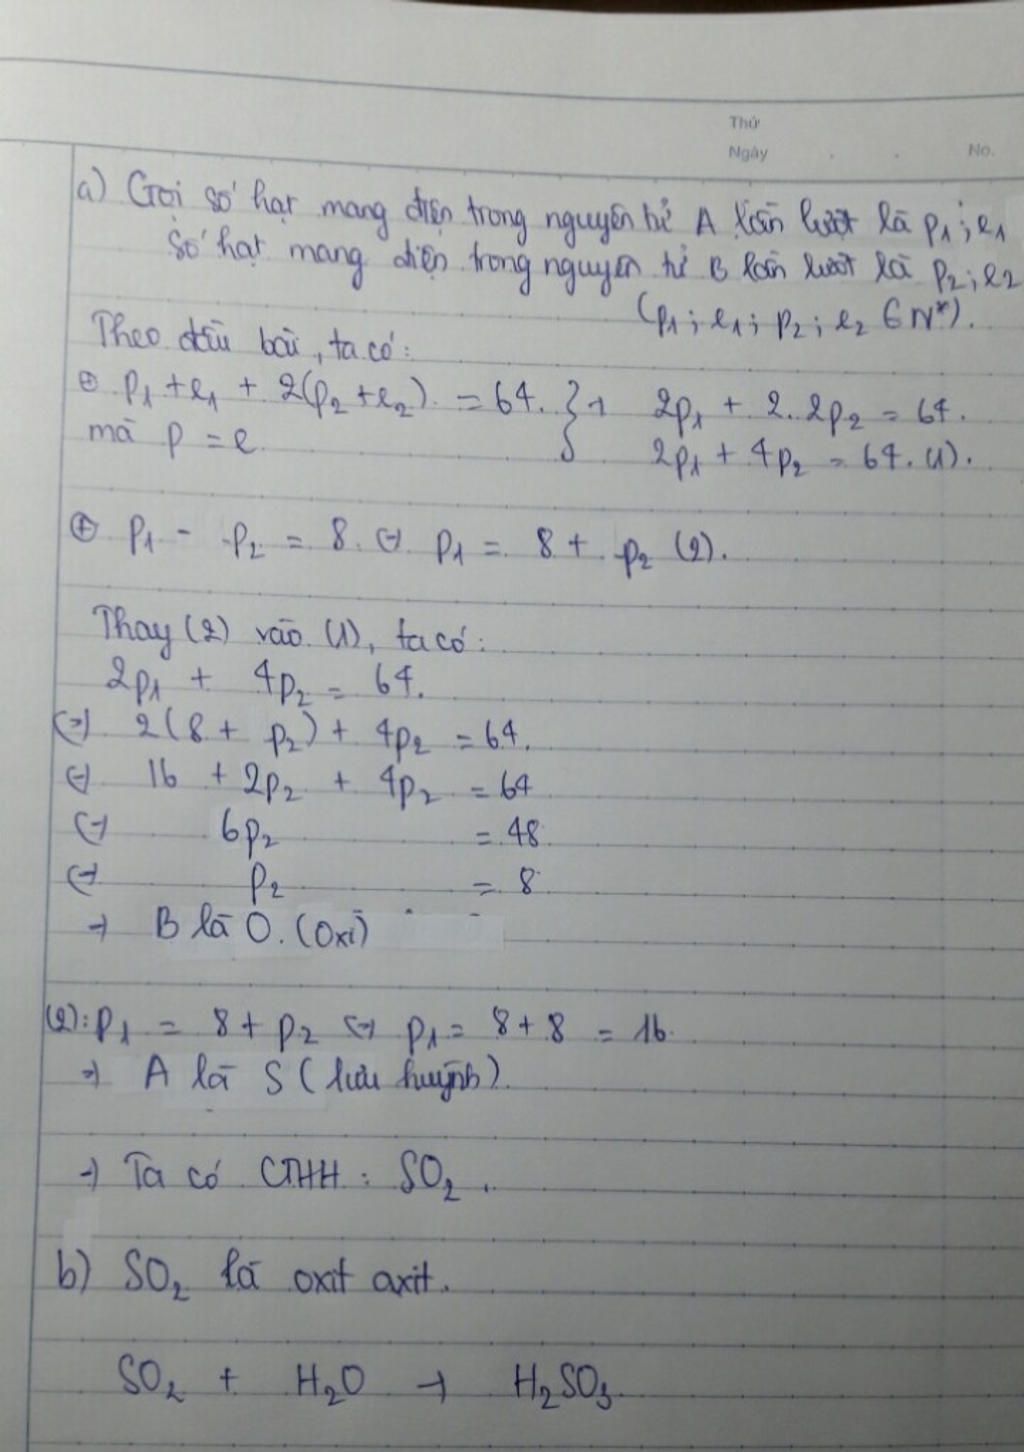 Thứ
Ngày . . No.
a) Gọi số hạt mang điện trong nguyên tử A lần lượt là p₁; e₁
Số hạt mang điện trong nguyên tử B lần lượt là p₂; e₂
(p₁; e₁; p₂; e₂ ∈ N*).
Theo đầu bài, ta có:
⊕ p₁ + e₁ + 2(p₂ + e₂) = 64. } → 2p₁ + 2.2p₂ = 64.
mà p = e 2p₁ + 4p₂ = 64. (1).
⊕ p₁ - p₂ = 8. ⇔ p₁ = 8 + p₂ (2).
Thay (2) vào (1), ta có:
2p₁ + 4p₂ = 64.
⇔ 2(8 + p₂) + 4p₂ = 64.
⇔ 16 + 2p₂ + 4p₂ = 64
⇔ 6p₂ = 48
⇔ p₂ = 8
→ B là O. (Oxi)
(2): p₁ = 8 + p₂ ⇔ p₁ = 8 + 8 = 16.
⇒ A là S (lưu huỳnh).
→ Ta có CTHH: SO₂.
b) SO₂ là oxit axit.
SO₂ + H₂O → H₂SO₃.